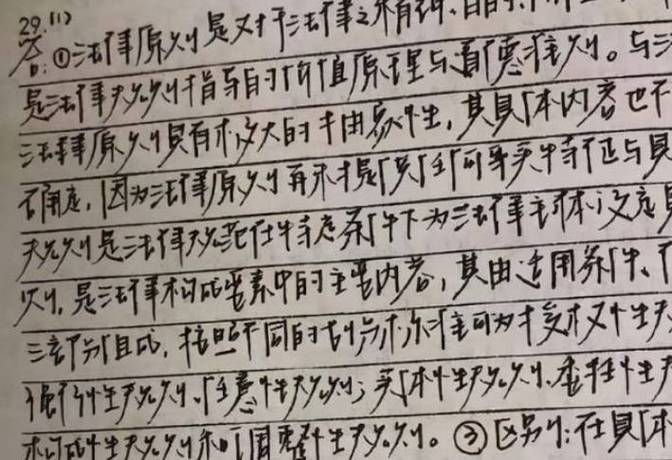 29.(1)
答:①法律原则是对于法律之外有
是法律规则指导目的价值原理与道德准则。与
法律原则具有极大的抽象性,其具体内容也不
确定,因为法律原则再提供任何事实特征与具
规则是法律规范在特定条件下为法律主体设定
则,是法律构成要素中的主要内容,其由适用条件、
三部分组成,按照不同的划分标准可为授权性
强行性规则、任意性规则;实体性规则、委任性
构成性规则和调整性规则。③区别:在具体